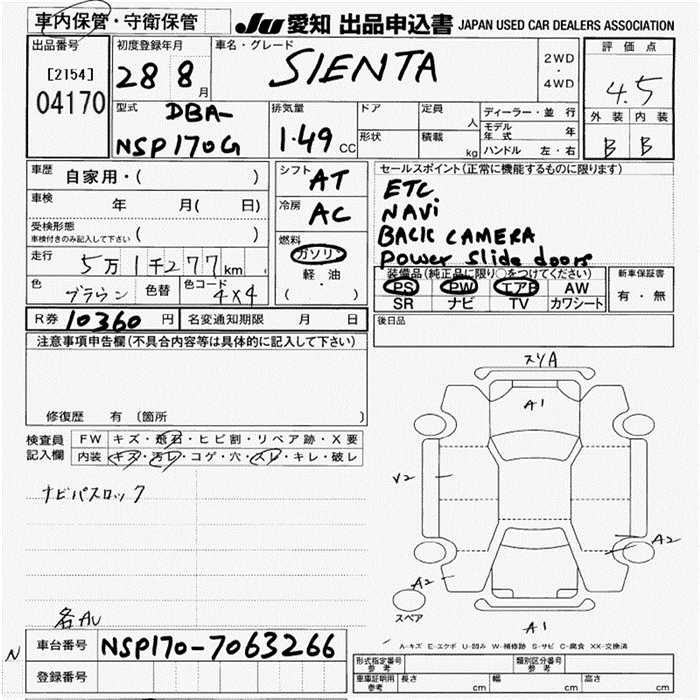 車内保管・守衛保管
Ju 愛知 出品申込書 JAPAN USED CAR DEALERS ASSOCIATION
出品番号
[2154]
04170
初度登録年月
28 8月
車名・グレード
SIENTA
2WD
・
4WD
評価点
4.5
外装 内装
B B
型式
DBA-
NSP170G
排気量
1.49 CC
ドア
定員
人
形状
積載
kg
ディーラー・並行
モデル年式 年
ハンドル 左・右
車歴 自家用・( )
車検 年 月( 日)
受検形態
車検付きのみ記入して下さい ( )
走行 5万1千277km
色 ブラウン 色替 色コード 4×4
シフト AT
冷房 AC
燃料
ガソリン
軽・油
( )
セールスポイント(正常に機能するものに限ります)
ETC
NAVi
BACK CAMERA
Power Slide doors
装備品(純正品に限り○をつけてください)
PS PW エアB AW
SR ナビ TV カワシート
新車保証書
有・無
R券 10360円
名変通知期限 月 日
後日品
注意事項申告欄(不具合内容等は具体的に記入して下さい)
修復歴 有 〔箇所 〕
検査員記入欄
FW キズ・飛石・ヒビ割・リペア跡・X要
内装 キズ・汚レ・コゲ・穴・スレ・キレ・破レ
ナビパスロック
各AU
スリA
A1
V2
A2
A2
スペア
A1
A-キズ E-エクボ U-凹み W-補修跡 S-サビ C-腐食 XX-交換済
N
車台番号 NSP170-7063266
登録番号
形式指定番号 参考
類別区分番号 参考
車庫証明用 参考
長さ cm 幅 cm 高さ cm